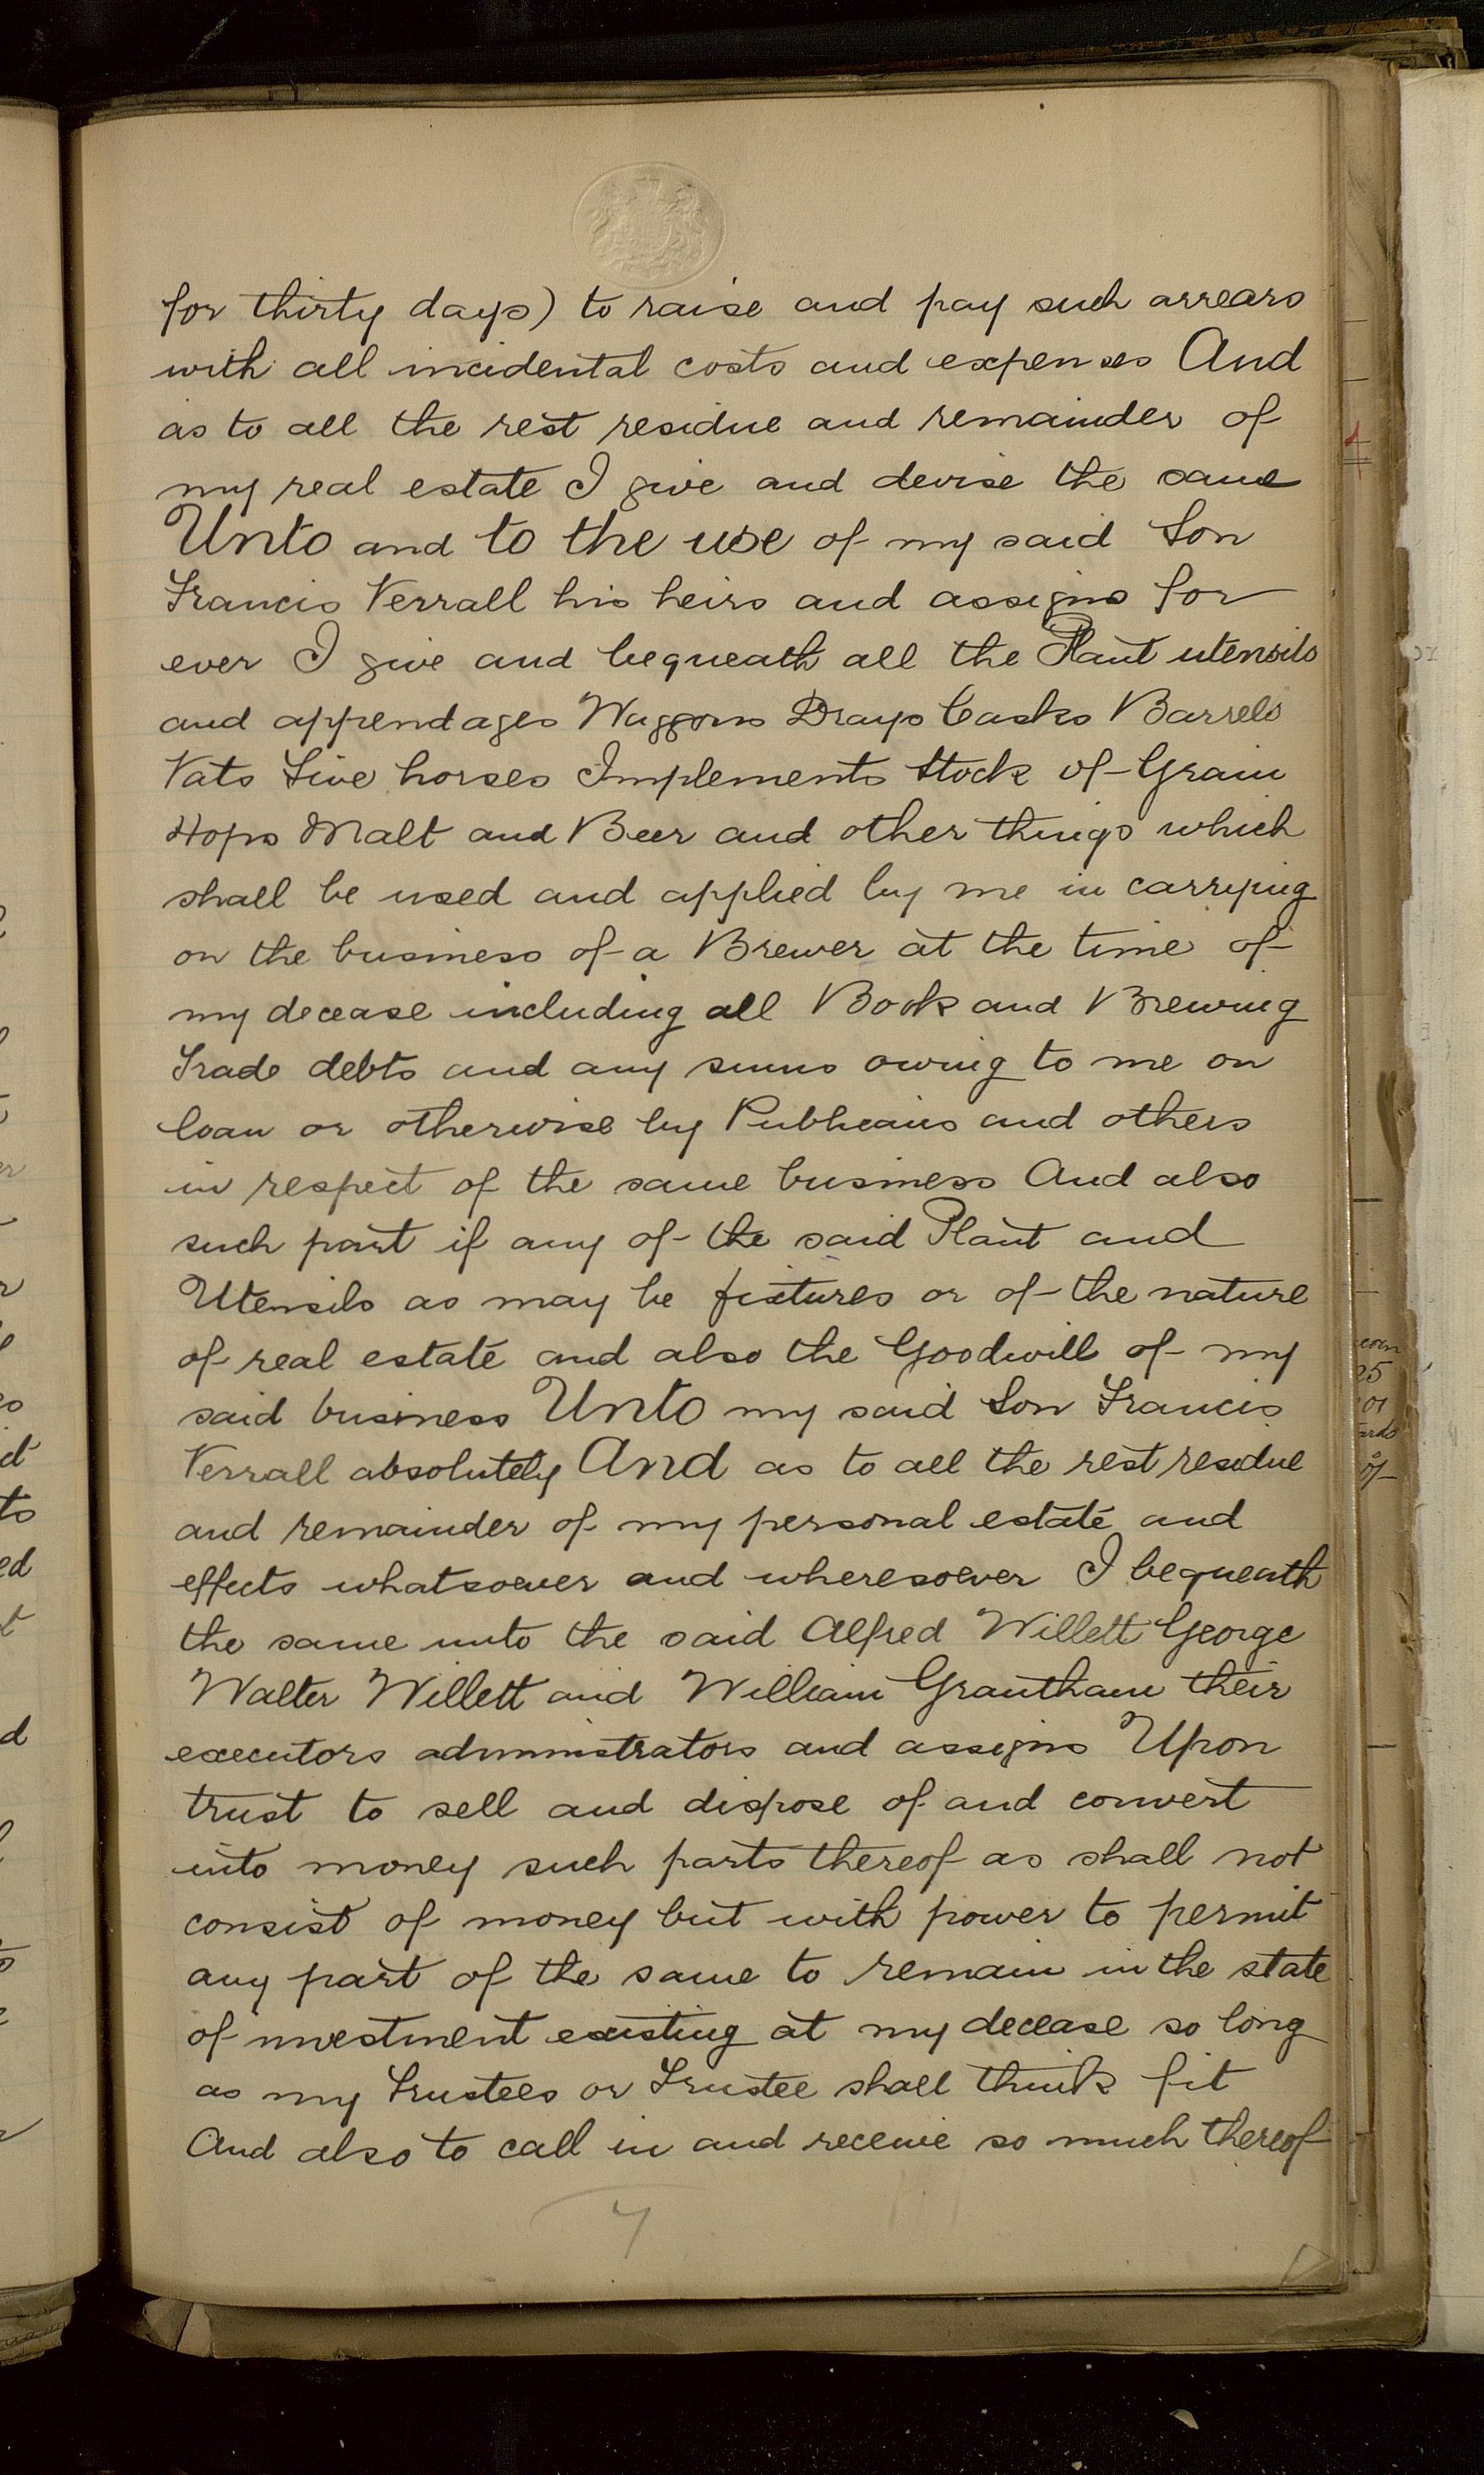 for thirty days) to raise and pay such arrears
with all incidental costs and expenses And
as to all the rest residue and remainder of
my real estate I give and devise the same
Unto and to the use of my said Son
Francis Verrall his heirs and assigns for
ever I give and bequeath all the Plant utensils
and appendages Waggons Drays Casks Barrels
Vats Live horses Implements Stock of Grain
Hops Malt and Beer and other things which
shall be used and applied by me in carrying
on the business of a Brewer at the time of
my decease including all Book and Brewing
Trade debts and any sums owing to me on
loan or otherwise by Publicans and others
in respect of the same business And also
such part if any of the said Plant and
Utensils as may be fixtures or of the nature
of real estate and also the Goodwill of my
said business Unto my said Son Francis
Verrall absolutely And as to all the rest residue
and remainder of my personal estate and
effects whatsoever and wheresoever I bequeath
the same unto the said Alfred Willett George
Walter Willett and William Grantham their
executors administrators and assigns Upon
trust to sell and dispose of and convert
into money such parts thereof as shall not
consist of money but with power to permit
any part of the same to remain in the state
of investment existing at my decease so long
as my Trustees or Trustee shall think fit
And also to call in and receive so much thereof
7